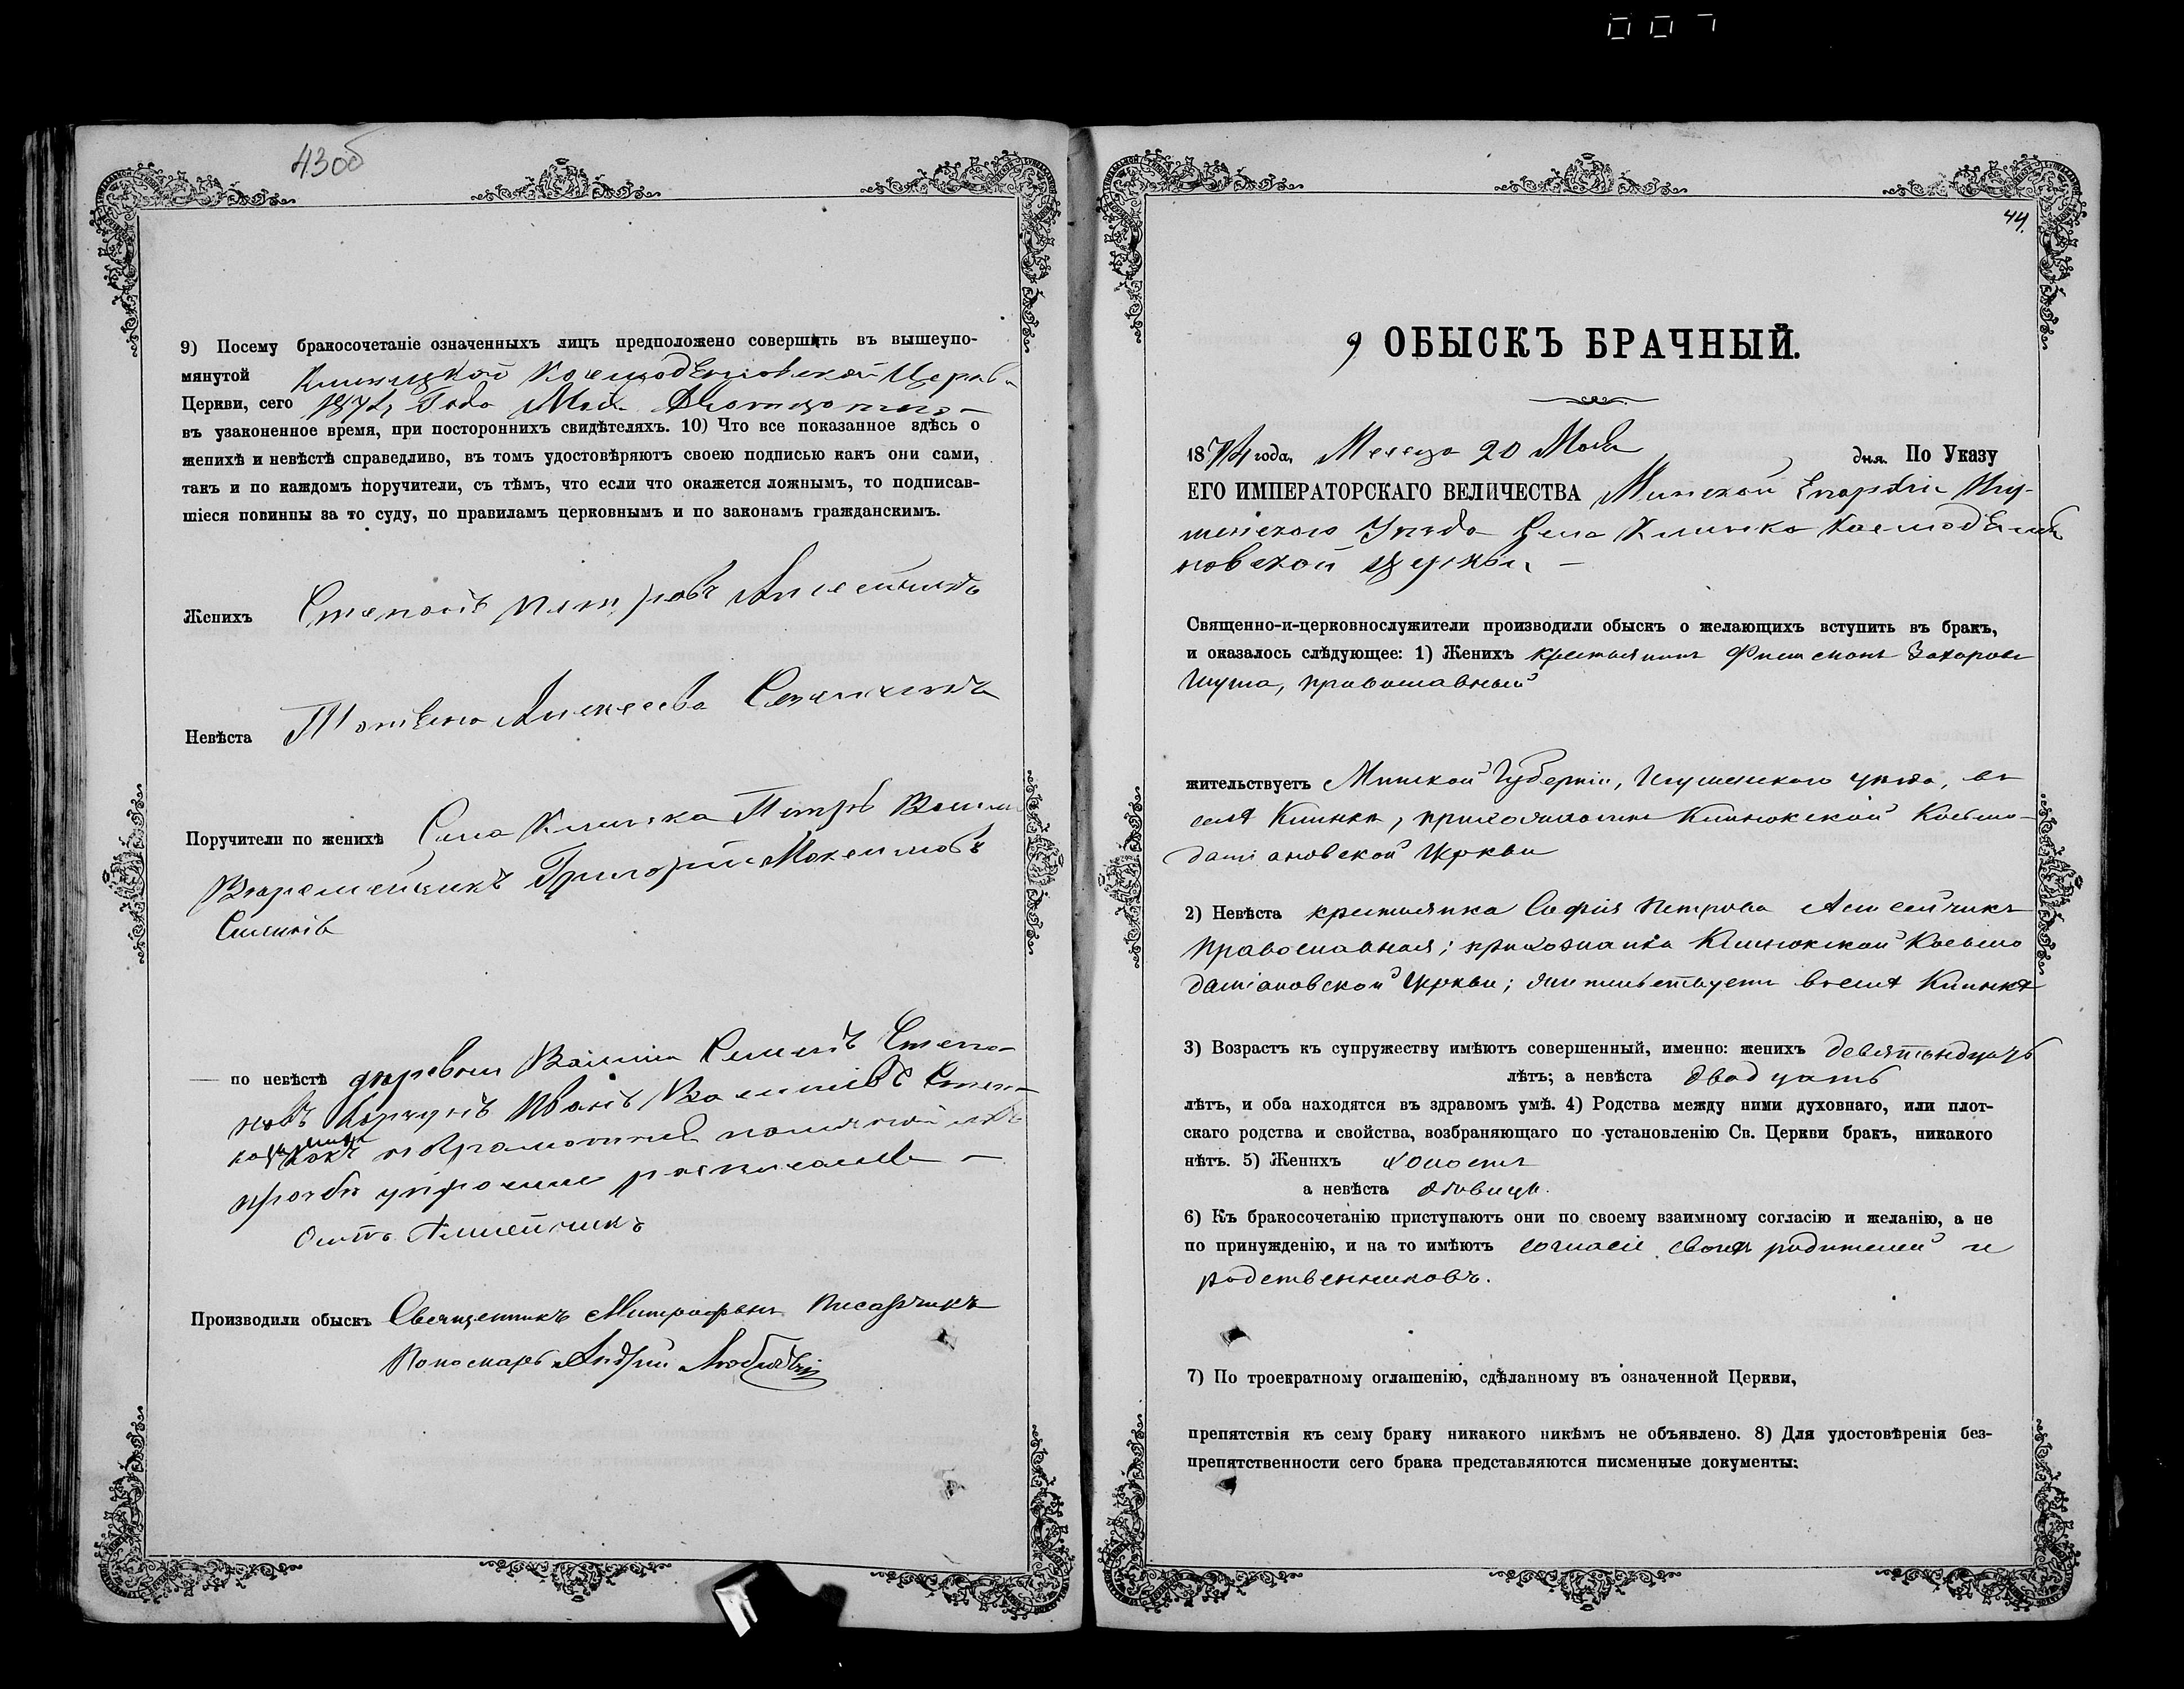 007
43об
9) Посему бракосочетаніе означенныхъ лицъ предположено совершить въ вышеупо-
мянутой
Церкви, сего 1874 Года Мая
въ узаконенное время, при постороннихъ свидѣтеляхъ. 10) Что все показанное здѣсь о
женихѣ и невѣстѣ справедливо, въ томъ удостовѣряютъ своею подписью какъ они сами,
такъ и по каждомъ поручители, съ тѣмъ, что если что окажется ложнымъ, то подписав-
шіеся повинны за то суду, по правиламъ церковнымъ и по законамъ гражданскимъ.
Женихъ Степанъ Петровъ
Невѣста Алексеева
Поручители по женихѣ Села Клинка Петръ
Григорій Максимовъ
— по невѣстѣ деревни Семенъ Степа-
новъ Иванъ
прозбы росписался —
Осипъ Алисейчикъ
Производили обыскъ Священникъ Митрофанъ
Пономарь Андрій
44.
9 ОБЫСКЪ БРАЧНЫЙ.
1874 года, Месеца 20 Мая дня. По Указу
ЕГО ИМПЕРАТОРСКАГО ВЕЛИЧЕСТВА Минской Епархіи Игу-
менскаго Уезда Села Клинка
новской Церкви —
Священно-и-церковнослужители производили обыскъ о желающихъ вступить въ бракъ,
и оказалось слѣдующее: 1) Женихъ крестьянинъ Филимонъ Захоровъ
Шуша, православный
жительствуетъ Минской Губерніи, Игуменскаго уезда, въ
селѣ Клинкѣ, прихожанинъ Клинокской Косьмо-
даміановской Церкви
2) Невѣста крестьянка Софія Петрова Алисейчикъ
православная; прихожанка Клинокской Косьмо
даміановской Церкви; жительствуетъ въ селѣ Клинкѣ
3) Возрастъ къ супружеству имѣютъ совершенный, именно: женихъ девятнадцать
лѣтъ; а невѣста двадцать
лѣтъ, и оба находятся въ здравомъ умѣ. 4) Родства между ними духовнаго, или плот-
скаго родства и свойства, возбраняющаго по установленію Св. Церкви бракъ, никакого
нѣтъ. 5) Женихъ холостъ
а невѣста дѣвица.
6) Къ бракосочетанію приступаютъ они по своему взаимному согласію и желанію, а не
по принужденію, и на то имѣютъ согласіе своихъ родителей и
родственниковъ.
7) По троекратному оглашенію, сдѣланному въ означенной Церкви,
препятствія къ сему браку никакого никѣмъ не объявлено. 8) Для удостовѣренія без-
препятственности сего брака представляются писменные документы: